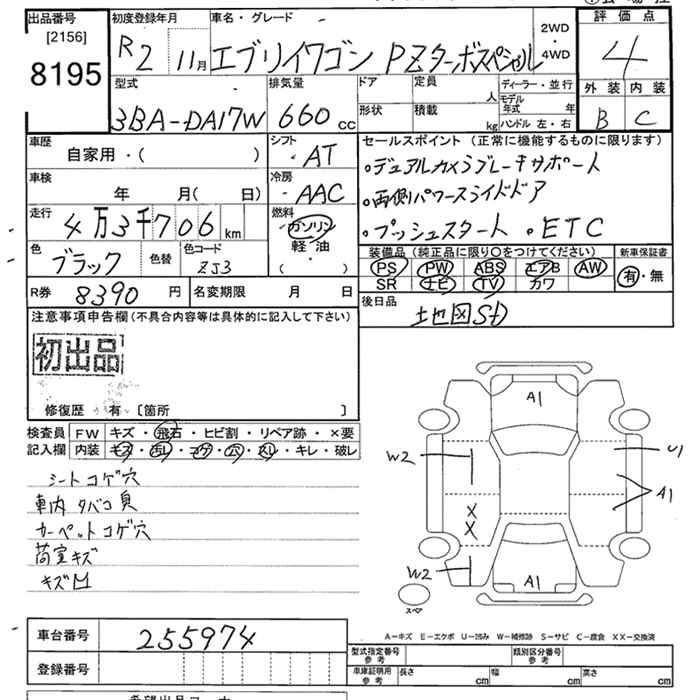 出品番号 初度登録年月 車名・グレード 2WD・4WD 評価点
[2156]
8195 R2 11月 エブリイワゴン PZターボスペシャル 4
型式 排気量 ドア 定員 人 ディーラー・並行 外装 内装
3BA-DA17W 660cc 形状 積載 kg モデル年式 年 ハンドル 左・右 B C
車歴 シフト セールスポイント(正常に機能するものに限ります)
自家用・( ) ・AT ・デュアルカメラブレーキサポート
車検 冷房 ・両側パワースライドドア
年 月( 日) ・AAC
走行 燃料 ・プッシュスタート ・ETC
4万3千706km ガソリン
軽油
・( )
色 ブラック 色替 色コード ZJ3 装備品(純正品に限り○をつけてください) 新車保証書
PS PW ABS エアB AW 有・無
R券 8390円 名変期限 月 日 SR ナビ TV カワ
注意事項申告欄(不具合内容等は具体的に記入して下さい) 後日品 地図SD
初出品
修復歴 有 [箇所 ]
検査員 FW キズ・飛石・ヒビ割・リペア跡・×要
記入欄 内装 キズ・汚レ・コゲ・穴・スレ・キレ・破レ
シートコゲ穴
車内タバコ臭
カーペットコゲ穴
荷室キズ
キズ凹
A1
W2 U1
A1
X
X
W2 A1
スペア
A-キズ E-エクボ U-凹み W-補修跡 S-サビ C-腐食 XX-交換済
車台番号 255974 型式指定番号 参考 類別区分番号 参考
登録番号 車庫証明用 参考 長さ cm 幅 cm 高さ cm